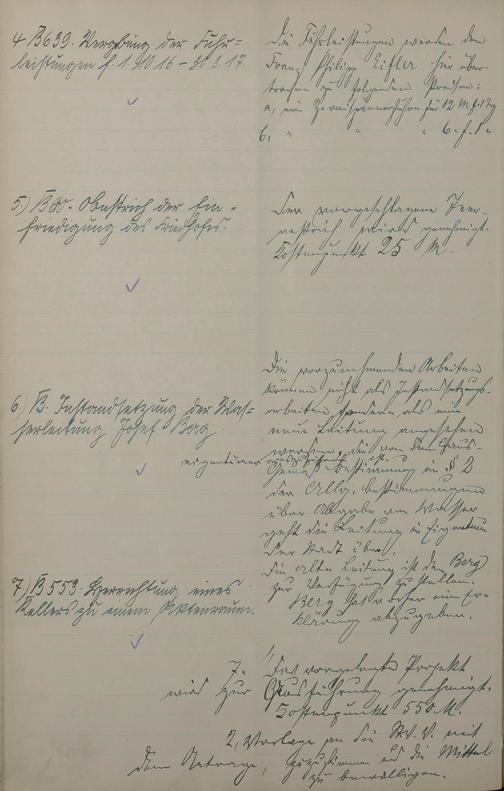 4 B 639. Vergebung der Fuhr=
leistungen f. 1.4 1916 – 31 3 17
Die Fuhrleistungen werden dem
Franz Philipp Eifler hier über-
tragen zu folgenden Preisen:
a, ein Zweispännerfuhre für 12 M f. 1 Tg
b, " " " 6. f. 1 "
5.) B Anstrich der Ein=
friedigung des Friedhofes.
Der vorgeschlagene Teer-
anstrich wird genehmigt.
Kostenpunkt 25 M.
6.) B. Instandsetzung der Was=
serleitung Josef Berg
Die vorzunehmenden Arbeiten
können nicht als Instandsetzungs-
arbeiten sondern als eine
neue Leitung angesehen
werden, die von dem Haus-
eigentümer auszuführen ist.
Gemäß Bestimmung in § 2
der Allg. Bestimmungen
über Abgabe von Wasser
geht die Leitung in Eigentum
der Stadt über.
Die alte Leitung ist dem Berg
zur Verfügung zu stellen.
Berg hat vorher eine Er-
klärung abzugeben.
7.) B 559. Herrichtung eines
Kellers zu einem Aktenraum.
7. 1, Das vorgelegte Projekt
wird zur Ausführung genehmigt.
Kostenpunkt 550 M.
2, Vorlage an die St. V. V. mit
dem Antrage, zuzustimmen und die Mittel
zu bewilligen.